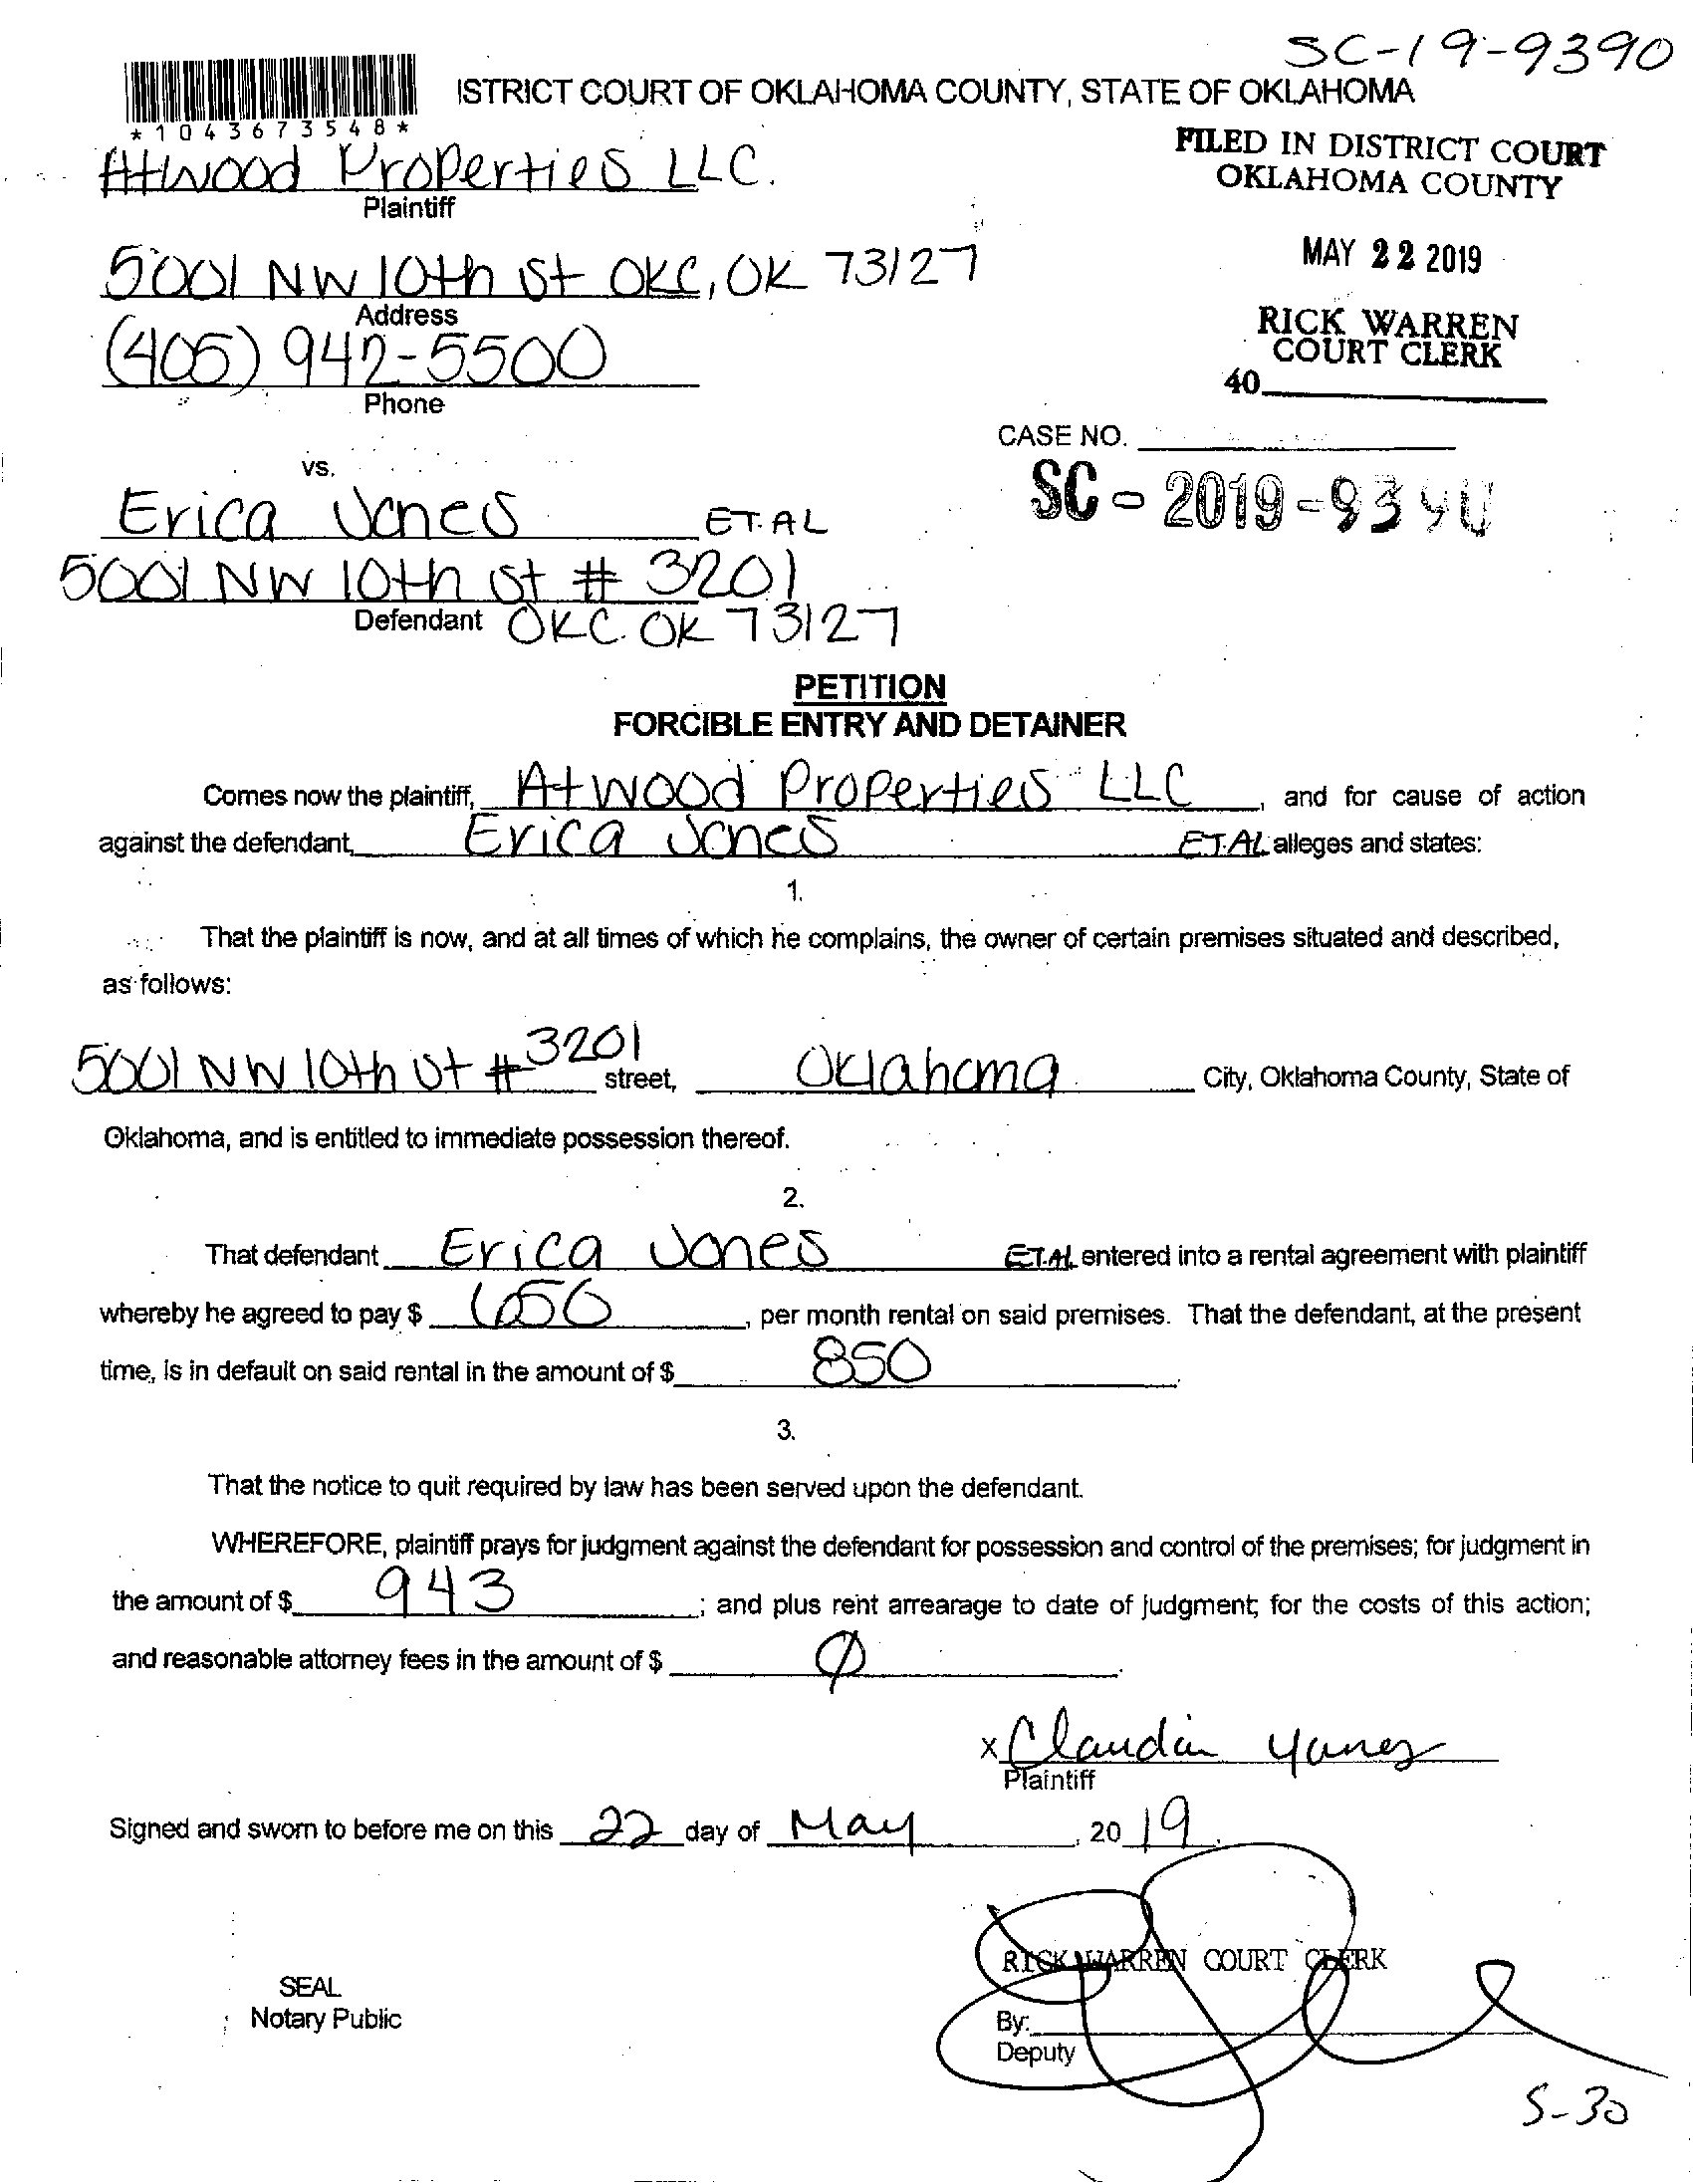 SC-19-9390
ISTRICT COURT OF OKLAHOMA COUNTY, STATE OF OKLAHOMA
*1043673548*
FILED IN DISTRICT COURT
OKLAHOMA COUNTY
Atwood Properties LLC.
Plaintiff
MAY 22 2019
5001 NW 10th St OKC, OK 73127
Address
RICK WARREN
COURT CLERK
(405) 942-5500
40
Phone
CASE NO.
vs.
SC - 2019 - 9390
Erica Jones ET. AL
5001 NW 10th St # 3201
Defendant OKC. OK 73127
PETITION
FORCIBLE ENTRY AND DETAINER
Comes now the plaintiff, Atwood Properties LLC, and for cause of action
against the defendant, Erica Jones ET.AL alleges and states:
1.
That the plaintiff is now, and at all times of which he complains, the owner of certain premises situated and described,
as follows:
5001 NW 10th St # 3201 street, Oklahoma City, Oklahoma County, State of
Oklahoma, and is entitled to immediate possession thereof.
2.
That defendant Erica Jones ET.AL entered into a rental agreement with plaintiff
whereby he agreed to pay $ 650, per month rental on said premises. That the defendant, at the present
time, is in default on said rental in the amount of $ 850.
3.
That the notice to quit required by law has been served upon the defendant.
WHEREFORE, plaintiff prays for judgment against the defendant for possession and control of the premises; for judgment in
the amount of $ 943; and plus rent arrearage to date of judgment; for the costs of this action;
and reasonable attorney fees in the amount of $ 0.
x Claudia Yanez
Plaintiff
Signed and sworn to before me on this 22 day of May, 2019.
RICK WARREN COURT CLERK
SEAL
Notary Public
By:
Deputy
S-30